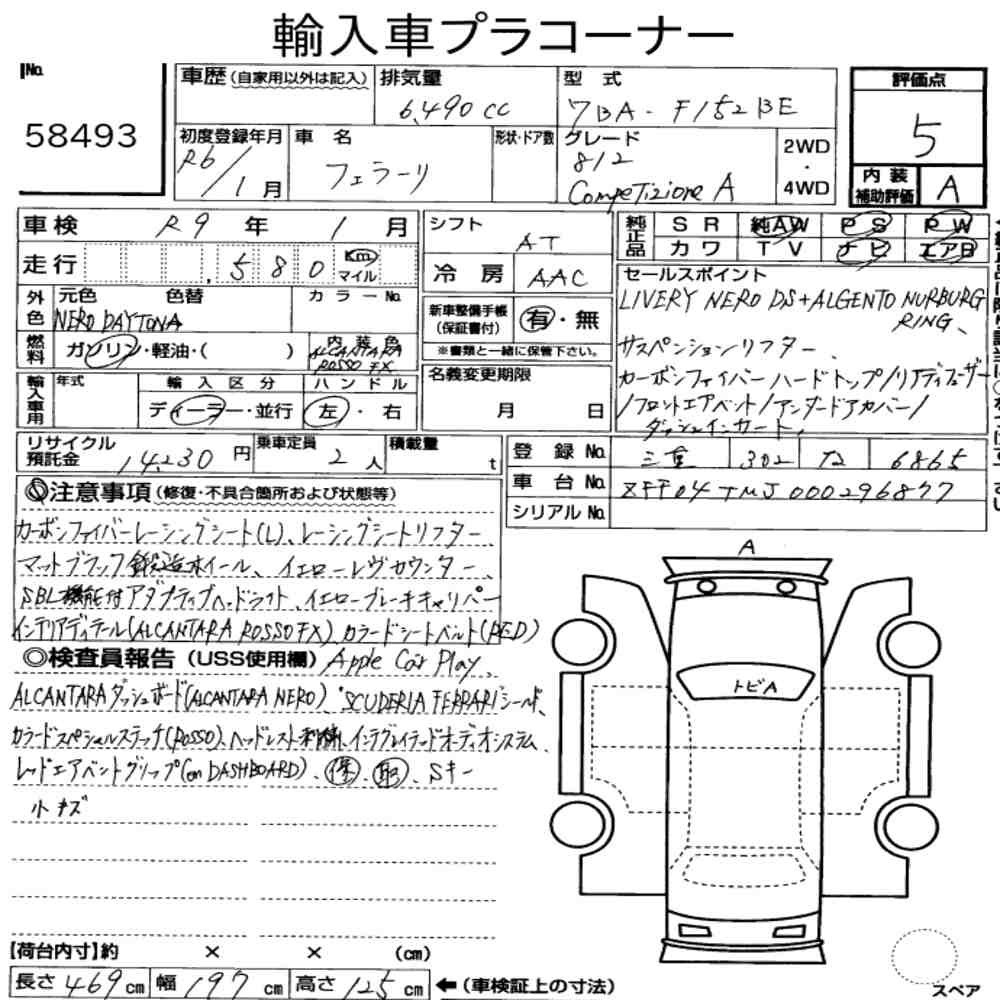 輸入車プラコーナー
No.
58493
車歴(自家用以外は記入)
排気量
6,490 cc
型 式
7BA - F152BE
評価点
5
初度登録年月
R6/1月
車 名
フェラーリ
形状・ドア数
グレード
812
Competizione A
2WD
・
4WD
内装
補助評価
A
車検 R9 年 1 月
走行 , 5 8 0 Km マイル
外色
元色 色替
カラーNo.
NERO DAYTONA
燃料 ガソリン・軽油・( )
内装色
ALCANTARA
ROSSO FX
輸入車用
年式
輸入区分
ディーラー・並行
ハンドル
左・右
シフト AT
冷 房 AAC
新車整備手帳
(保証書付)
有・無
※書類と一緒に保管下さい。
名義変更期限
月 日
純正品
SR 純AW PS PW
カワ TV ナビ エアB
セールスポイント
LIVERY NERO DS+ALGENTO NURBURG
RING、
サスペンションリフター、
カーボンファイバーハードトップ/リアディフューザー
/フロントエアベント/アンダードアカバー/
ダッシュインサート、
リサイクル
預託金
14,230 円
乗車定員
2 人
積載量
t
登 録 No. 三重 302 た 6865
車 台 No. ZFF04TMJ000296877
シリアルNo.
◎注意事項(修復・不具合箇所および状態等)
カーボンファイバーレーシングシート(L)、レーシングシートリフター、
マットブラック鍛造ホイール、イエローレヴカウンター、
SBL機能付アダプティブヘッドライト、イエローブレーキキャリパー
インテリアディテール(ALCANTARA ROSSO FX)カラードシートベルト(RED)
◎検査員報告(USS使用欄)
Apple Car Play、
ALCANTARAダッシュボード(ALCANTARA NERO)、"SCUDERIA FERRARI"シールド、
カラードスペシャルステッチ(ROSSO)、ヘッドレスト刺繍、インテグレイテッドオーディオシステム、
レッドエアベントグリップ(on DASHBOARD)、保、取、Sキー
小キズ
A
トビA
【荷台内寸】約 × × (cm)
長さ 469 cm 幅 197 cm 高さ 125 cm
←(車検証上の寸法)
スペア